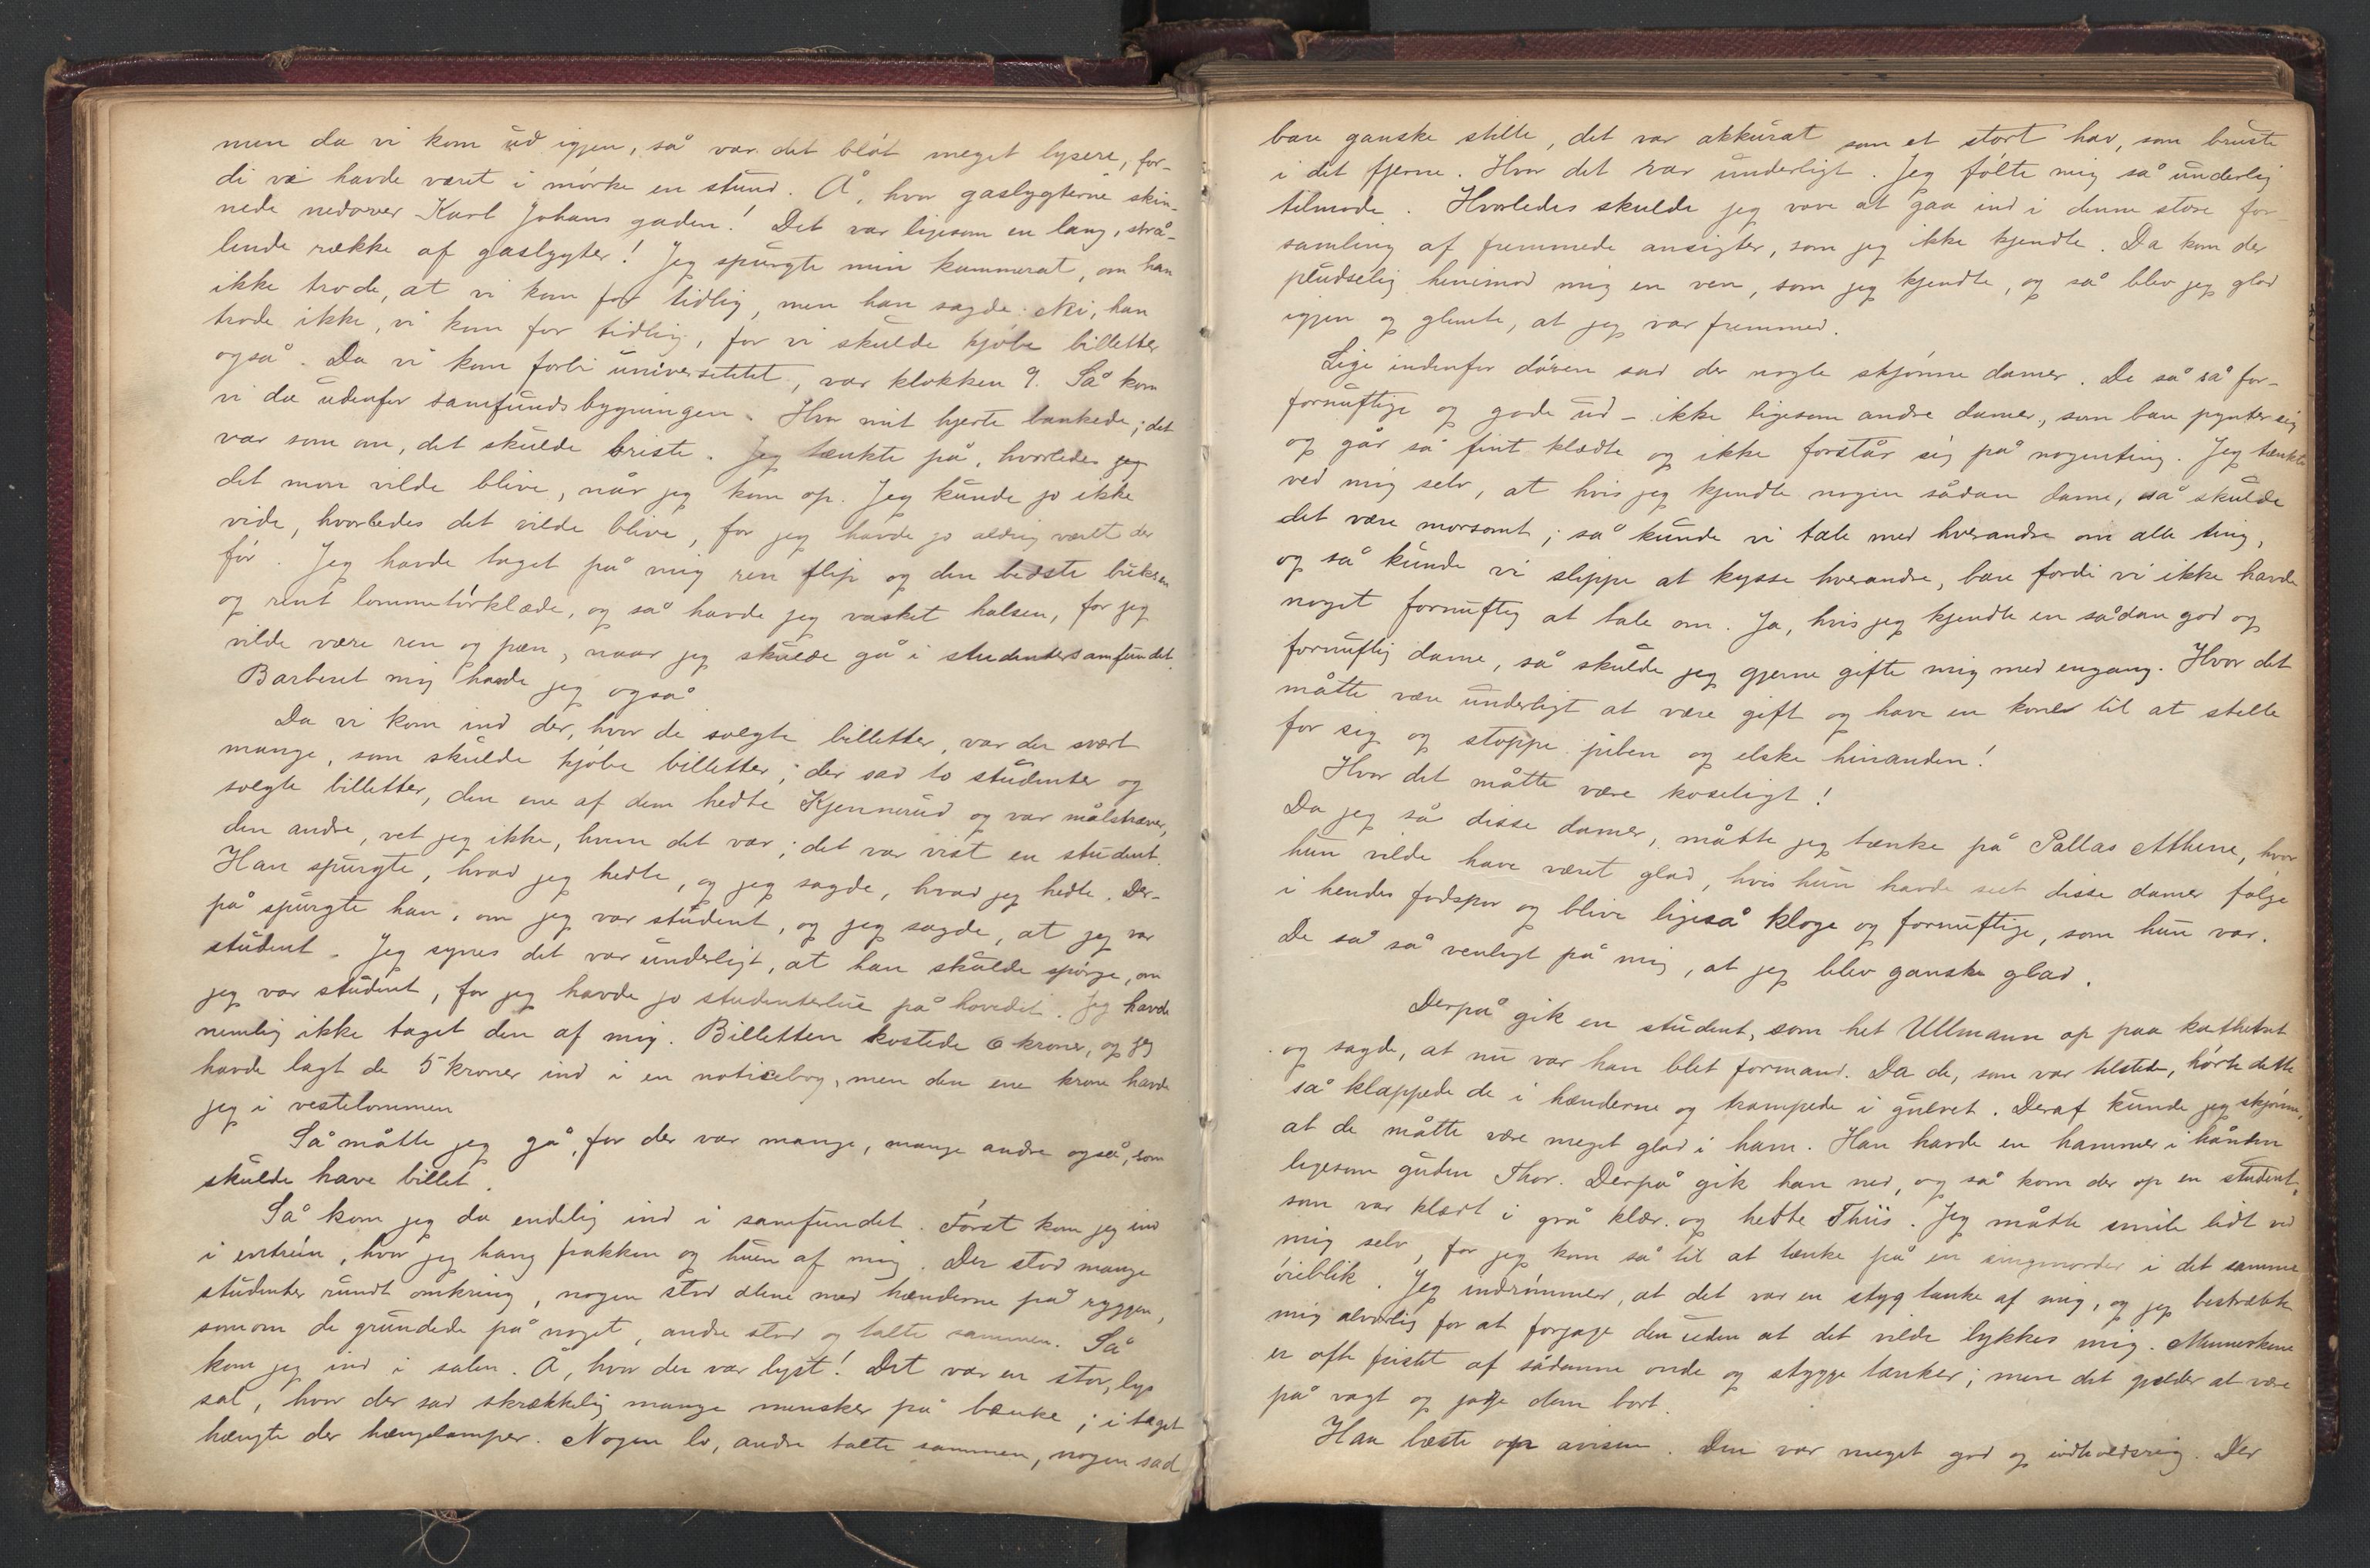 men da vi kom ud igjen, så var det blót meget lysere, for-
di vi havde været i mórke en stund. Å, hvor gaslygterne skin-
nede nedover Karl Johans gaden! Det var ligesom en lang, strå-
lende række af gaslygter! Jeg spurgte min kammerat, om han
ikke trode, at vi kom for tidlig, men han sagde: Nei, han
trode ikke, vi kom for tidlig, for vi skulde kjóbe billetter
også. Da vi kom forbi universitetet, var klokken 9. Så kom
vi da udenfor samfundsbygningen. Hvor mit hjerte bankede; det
var som om, det skulde briste. Jeg tænkte på, hvorledes jeg
det mon vilde blive, når jeg kom op. Jeg kunde jo ikke
vide, hvorledes det vilde blive, for jeg havde jo aldrig været der
fór. Jeg havde taget på mig ren flip og den bedste buksen
og rent lommetórklæde, og så havde jeg vasket halsen, for jeg
vilde være ren og pæn, naar jeg skulde gå i studentersamfundet.
Barberet mig havde jeg også
Da vi kom ind der, hvor de solgte billetter, var der svært
mange, som skulde kjóbe billetter; der sad to studenter og
solgte billetter, den ene af dem hedte Kjennerud og var målstræver,
den andre, vet jeg ikke, hvem det var; det var vist en student.
Han spurgte, hvad jeg hedte, og jeg sagde, hvad jeg hedte. Der-
på spurgte han, om jeg var student, og jeg sagde, at jeg var
student. Jeg synes det var underligt, at han skulde spórge, om
jeg var student, for jeg havde jo studenterlue på hovedet. Jeg havde
nemlig ikke taget den af mig. Billetten kostede 6 kroner, og jeg
havde lagt de 5 kroner ind i en noticebog, men den ene krone havde
jeg i vestelommen
Så måtte jeg gå, for der var mange, mange andre også, som
skulde have billet.
Så kom jeg da endelig ind i samfundet. Fórst kom jeg ind
i entréen, hvor jeg hang frakken og huen af mig. Der stod mange
studenter rundt omkring, nogen stod alene med hænderne på ryggen,
somom de grundede på noget, andre stod og talte sammen. Så
kom jeg ind i salen. Å, hvor der var lyst! Det var en stor, lys
sal, hvor der sad skrækkelig mange mensker på bænke; i taget
hængte der hængelamper. Nogen lo, andre talte sammen, nogen sad
bare ganske stille, det var akkurat som et stort hav, som bruste
i det fjerne. Hvor det var underligt. Jeg fólte mig så underlig
tilmode. Hvorledes skulde jeg vove at gaa ind i denne store for-
samling af fremmede ansigter, som jeg ikke kjendte. Da kom der
pludselig henimod mig en ven, som jeg kjendte, og så blev jeg glad
igjen og glemte, at jeg var fremmed.
Lige indenfor dóren sad der nogle skjónne damer. De så så for-
fornuftige og gode ud – ikke ligesom andre damer, som bare pynter sig
og går så fint klædte og ikke forstår sig på nogenting. Jeg tænkte
ved mig selv, at hvis jeg kjendte nogen sådan dame, så skulde
det være morsomt; så kunde vi tale med hverandre om alle ting,
og så kunde vi slippe at kysse hverandre, bare fordi vi ikke havde
noget fornuftig at tale om. Ja, hvis jeg kjendte en sådan god og
fornuftig dame, så skulde jeg gjerne gifte mig med engang. Hvor det
måtte være underligt at være gift og have en kone til at stelle
for sig og stoppe piben og elske hinanden!
Hvor det måtte være koseligt!
Da jeg så disse damer, måtte jeg tænke på Pallas Athene, hvor
hun vilde have været glad, hvis hun havde seet disse damer fólge
i hendes fodspor og blive ligeså kloge og fornuftige, som hun var.
De så så venligt på mig, at jeg blev ganske glad.
Derpå gik en student, som het Ullmann op paa kathetret
og sagde, at nu var han blet formand. Da de, som var tilstede, hórte dette
så klappede de i hænderne og trampede i gulvet. Deraf kunde jeg skjónne,
at de måtte være meget glad i ham. Han havde en hammer i hånden
ligesom guden Thor. Derpå gik han ned, og så kom der op en student,
som var klædt i grå klær og hedte Thiis. Jeg måtte smile lidt ved
mig selv, for jeg kom så til at tænke på en snigmorder i det samme
óieblik. Jeg indrómmer, at det var en styg tanke af mig, og jeg bestræbte
mig alvorlig for at forjage den uden at det vilde lykkes mig. Menneskene
er ofte fristet af sådanne onde og stygge tanker; men det gjælder at være
på vagt og jage dem bort.
Han læste op avisen. Den var meget god og indholdsrig. Der